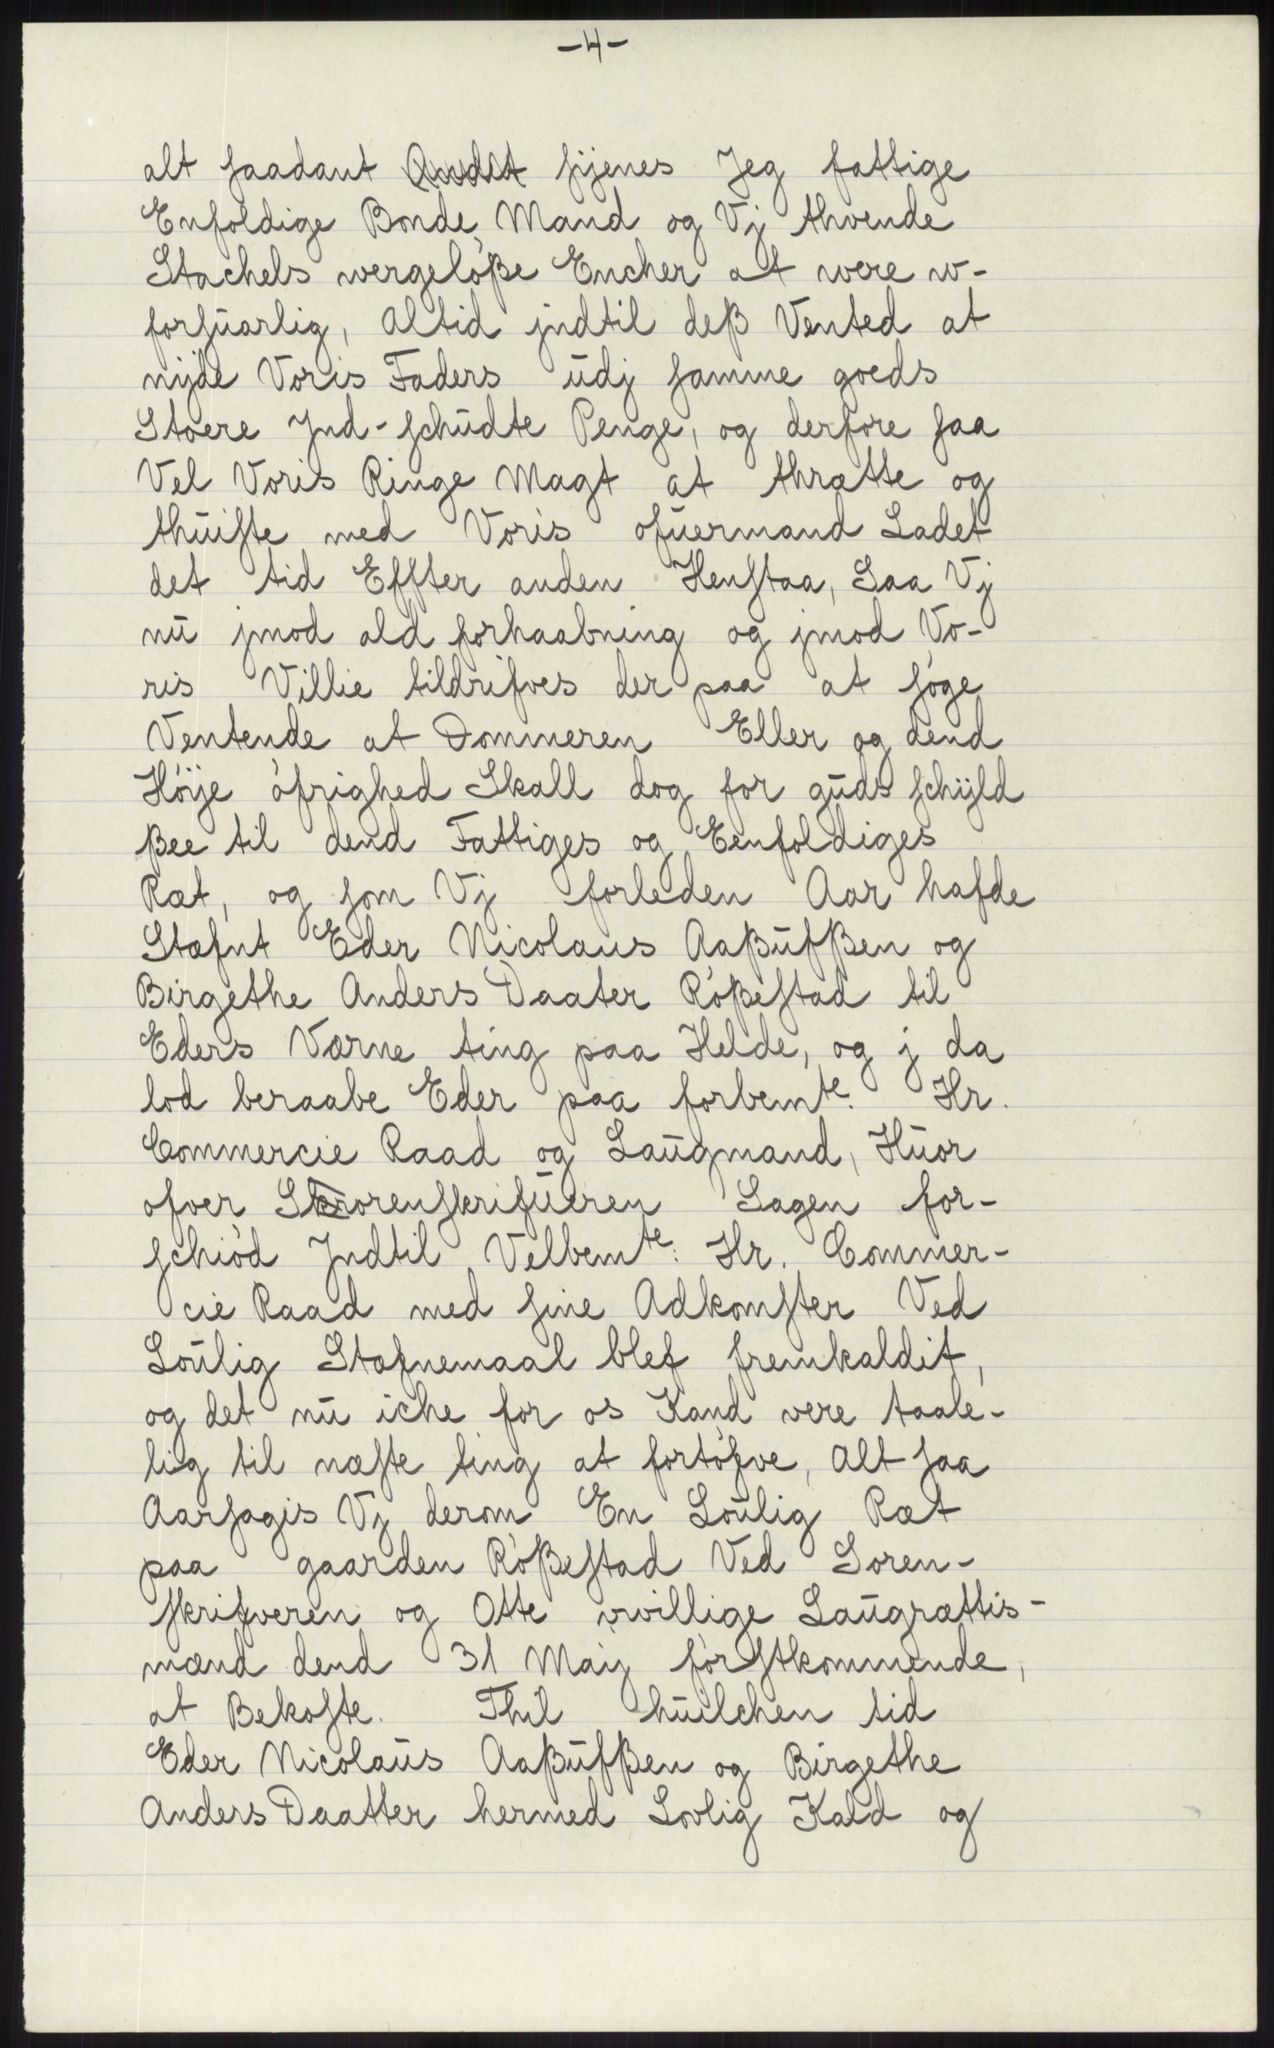 -4-
alt saadant Andit sÿenes Jeg fattige
Enfoldige Bonde Mand og Vj thvende
Stachels wergeløße Encher at were w-
forsuarlig, Altid jndtil deß Vented at
nÿde Voris Faders udj samme goeds
Stoere Jnd-schudte Penge, og derfore saa
Vel Voris Ringe Magt at thrætte og
thuiste med Voris ofuermand Ladet
det tid Effter anden Henstaa, Saa Vj
nu jmod ald forhaabning og jmod Vo-
ris Villie tildrifves der paa at søge
Ventende at Dommeren Eller og dend
Høÿe øfrighed Skall dog for guds schÿld
ßee til dend Fattiges og Eenfoldiges
Ræt, og som Vj forleden Aar hafde
Stæfnt Eder Nicolaus Aaßufßen og
Birgethe Anders Daater Røßestad til
Eders Værne ting paa Helde, og j da
lod beraabe Eder paa forbemte. Hr.
Commercie Raad og Laugmand, Huor
ofver Skrorenskrifueren Sagen for-
schiød Jndtil Velbemte: Hr. Commer-
cie Raad med sine Adkomster Ved
Loulig Stæfnemaal blef fremkaldit,
og det nu iche for os Kand vere taale-
lig til næste ting at fortøfve, Alt saa
Aarsagis Vj derom En Loulig Ræt
paa gaarden Røßestad Ved Soren-
skrifveren og Otte wvillige Laugrættis-
mænd dend 31 Maij førstkommende,
at Bekoste. Thil huilchen tid
Eder Nicolaus Aaßufßen og Birgethe
Anders Daatter hermed Lovlig Kald og